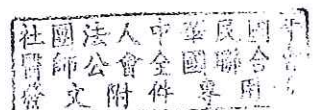 社團法人中華民國牙
醫師公會全國聯合
發文附件專用